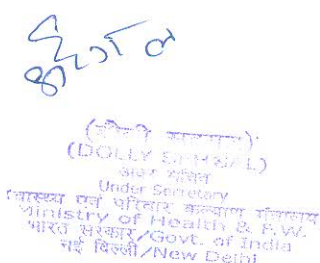 (DOLLY
अवर सचिव
Under Secretary
स्वास्थ्य एवं परिवार कल्याण मंत्रालय
Ministry of Health & F.W.
भारत सरकार/Govt. of India
नई दिल्ली/New Delhi